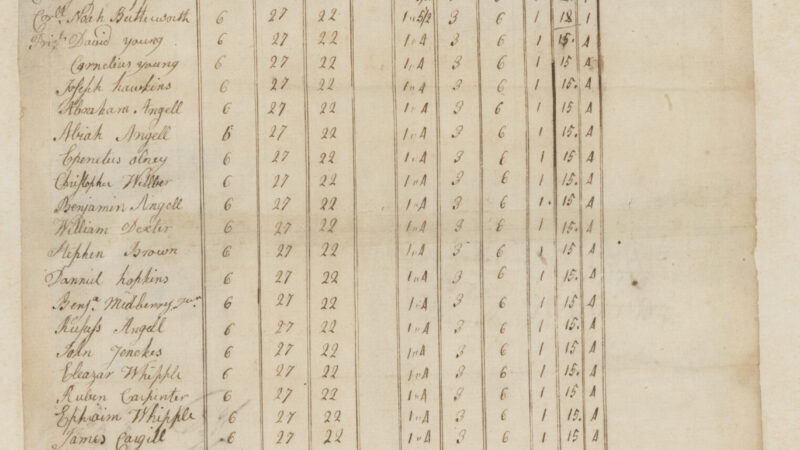 Corpl. Noah Butterworth 6 27 22 1 0 5/2 3 6 1 18 1
Privt. David young 6 27 22 1 0 4 3 6 1 15. 4
Cornelius young 6 27 22 1 0 4 3 6 1 15 4
Joseph hawkins 6 27 22 1 0 4 3 6 1 15. 4
Abraham Angell 6 27 22 1 0 4 3 6 1 15 4
Abiah Angell 6 27 22 1 0 4 3 6 1 15. 4
Epenetus olney 6 27 22 1 0 4 3 6 1 15 4
Christopher Willber 6 27 22 1 0 4 3 6 1 15. 4
Benjamin Angell 6 27 22 1 0 4 3 6 1 15. 4
William Dexter 6 27 22 1 0 4 3 6 1 15. 4
Stephen Brown 6 27 22 1 0 4 3 6 1 15. 4
Danniel hopkins 6 27 22 1 0 4 3 6 1 15. 4
Benja. Midberrey Junr. 6 27 22 1 0 4 3 6 1 15. 4
Rufuss Angell 6 27 22 1 0 4 3 6 1 15. 4
John Jenckes 6 27 22 1 0 4 3 6 1 15. 4
Eleazar Whipple 6 27 22 1 0 4 3 6 1 15. 4
Ruben Carpenter 6 27 22 1 0 4 3 6 1 15. 4
Ephraim Whipple 6 27 22 1 0 4 3 6 1 15. 4
James Cargill 6 27 22 1 0 4 3 6 1 15 4